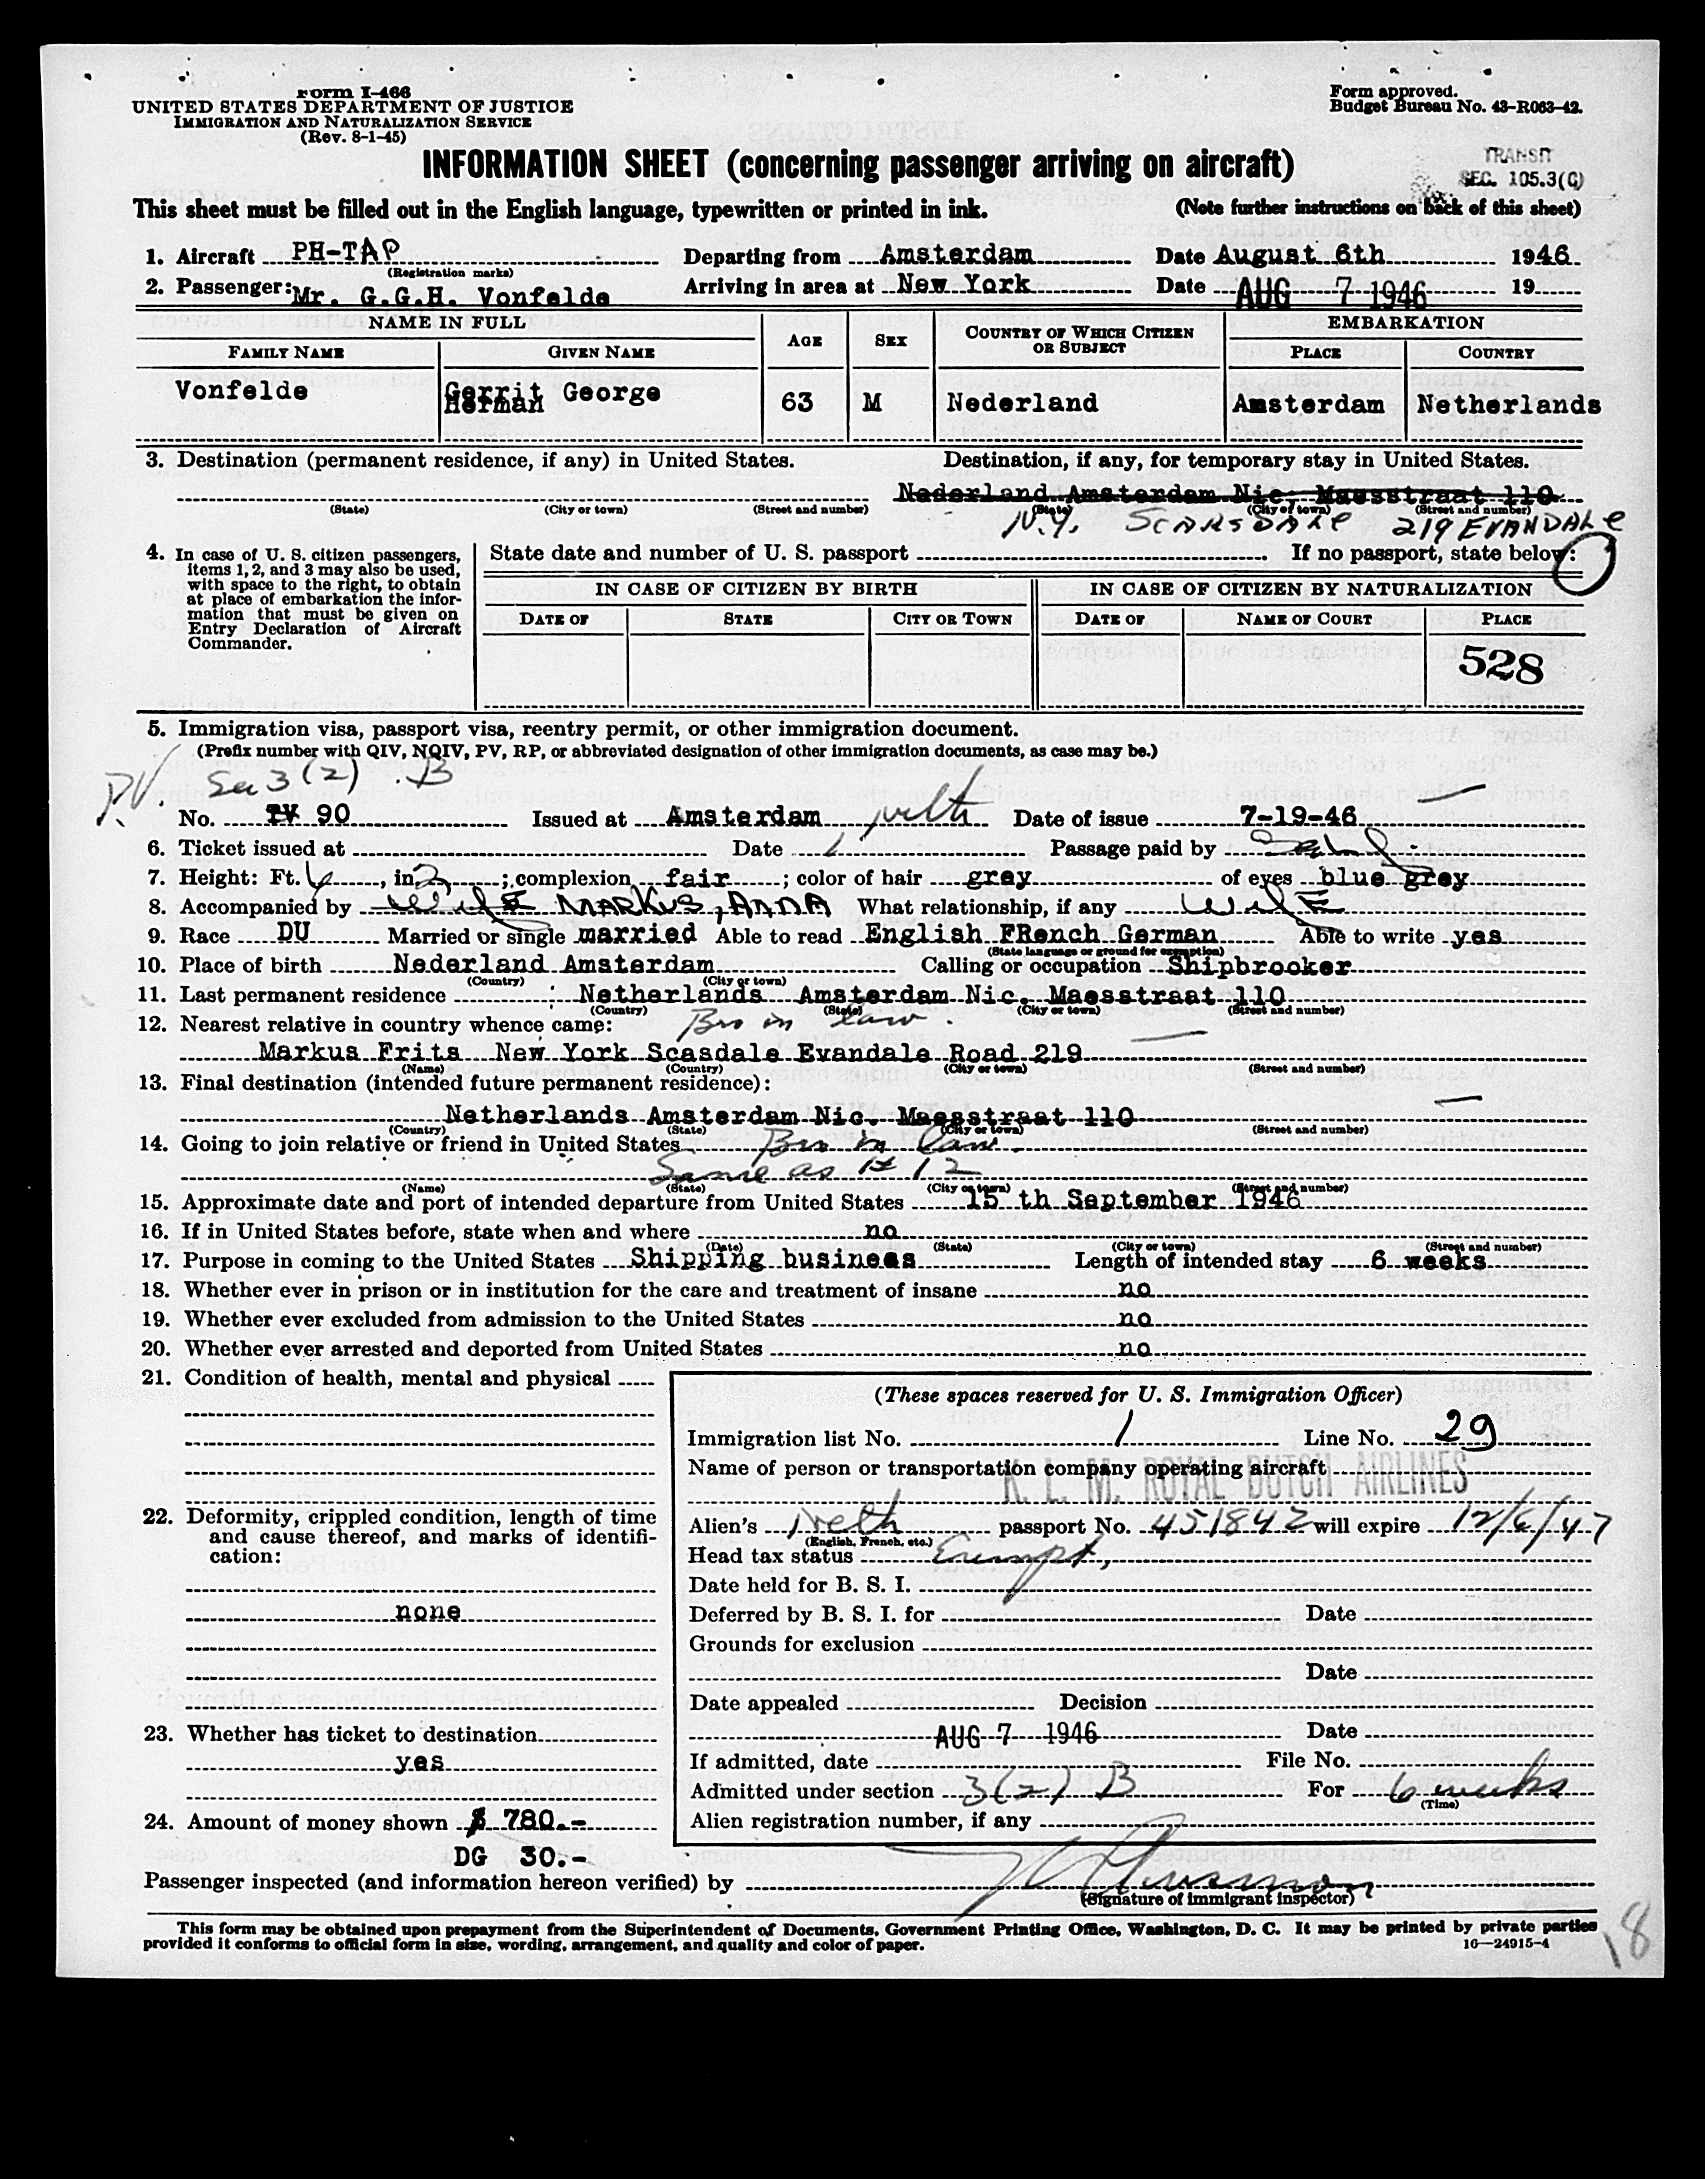 Form I-466
UNITED STATES DEPARTMENT OF JUSTICE
IMMIGRATION AND NATURALIZATION SERVICE
(Rev. 8-1-45)
Form approved.
Budget Bureau No. 43-R063-42.
INFORMATION SHEET (concerning passenger arriving on aircraft)
TRANSIT
SEC. 105.3(C)
This sheet must be filled out in the English language, typewritten or printed in ink. (Note further instructions on back of this sheet)
1. Aircraft PH-TAP Departing from Amsterdam Date August 6th 1946
(Registration marks)
2. Passenger: Mr. G.G.H. Vonfelde Arriving in area at New York Date AUG 7 1946 19
NAME IN FULL AGE SEX COUNTRY OF WHICH CITIZEN OR SUBJECT EMBARKATION
FAMILY NAME GIVEN NAME PLACE COUNTRY
Vonfelde Gerrit George Herman 63 M Nederland Amsterdam Netherlands
3. Destination (permanent residence, if any) in United States. Destination, if any, for temporary stay in United States.
Nederland Amsterdam Nic. Maesstraat 110
(State) (City or town) (Street and number) (State) (City or town) (Street and number)
N.Y. SCARSDALE 219 EVANDALE
4. In case of U. S. citizen passengers, items 1, 2, and 3 may also be used, with space to the right, to obtain at place of embarkation the information that must be given on Entry Declaration of Aircraft Commander.
State date and number of U. S. passport If no passport, state below:
IN CASE OF CITIZEN BY BIRTH IN CASE OF CITIZEN BY NATURALIZATION
DATE OF STATE CITY OR TOWN DATE OF NAME OF COURT PLACE
528
5. Immigration visa, passport visa, reentry permit, or other immigration document.
(Prefix number with QIV, NQIV, PV, RP, or abbreviated designation of other immigration documents, as case may be.)
P.V. Sec 3 (2) B
No. 90 Issued at Amsterdam Neth Date of issue 7-19-46
6. Ticket issued at Date Passage paid by Self
7. Height: Ft. 6, in. 2; complexion fair; color of hair grey of eyes blue grey
8. Accompanied by Wife MARKUS, ANNA What relationship, if any Wife
9. Race DU Married or single married Able to read English FRench German Able to write yes
(State language or ground for exemption)
10. Place of birth Nederland Amsterdam Calling or occupation Shipbrooker
(Country) (City or town)
11. Last permanent residence Netherlands Amsterdam Nic. Maesstraat 110
(Country) (State) (City or town) (Street and number)
12. Nearest relative in country whence came: Bro in law.
Markus Frits New York Scasdale Evandale Road 219
(Name) (Country) (City or town) (Street and number)
13. Final destination (intended future permanent residence):
Netherlands Amsterdam Nic. Maesstraat 110
(Country) (State) (City or town) (Street and number)
14. Going to join relative or friend in United States Bro in law.
Same as # 12
(Name) (State) (City or town) (Street and number)
15. Approximate date and port of intended departure from United States 15 th September 1946
16. If in United States before, state when and where no
(Date) (State) (City or town) (Street and number)
17. Purpose in coming to the United States Shipping business Length of intended stay 6 weeks
18. Whether ever in prison or in institution for the care and treatment of insane no
19. Whether ever excluded from admission to the United States no
20. Whether ever arrested and deported from United States no
21. Condition of health, mental and physical
22. Deformity, crippled condition, length of time and cause thereof, and marks of identification:
none
23. Whether has ticket to destination
yes
24. Amount of money shown $ 780.-
DG 30.-
(These spaces reserved for U. S. Immigration Officer)
Immigration list No. 1 Line No. 29
Name of person or transportation company operating aircraft
K. L. M. ROYAL DUTCH AIRLINES
Alien's Neth passport No. 451842 will expire 12/6/47
(English, French, etc.)
Head tax status Exempt,
Date held for B. S. I.
Deferred by B. S. I. for Date
Grounds for exclusion
Date
Date appealed Decision
AUG 7 1946 Date
If admitted, date File No.
Admitted under section 3(2) B For 6 weeks
(Time)
Alien registration number, if any
Passenger inspected (and information hereon verified) by
(Signature of immigrant inspector)
This form may be obtained upon prepayment from the Superintendent of Documents, Government Printing Office, Washington, D. C. It may be printed by private parties
provided it conforms to official form in size, wording, arrangement, and quality and color of paper.
16—24915-4
18